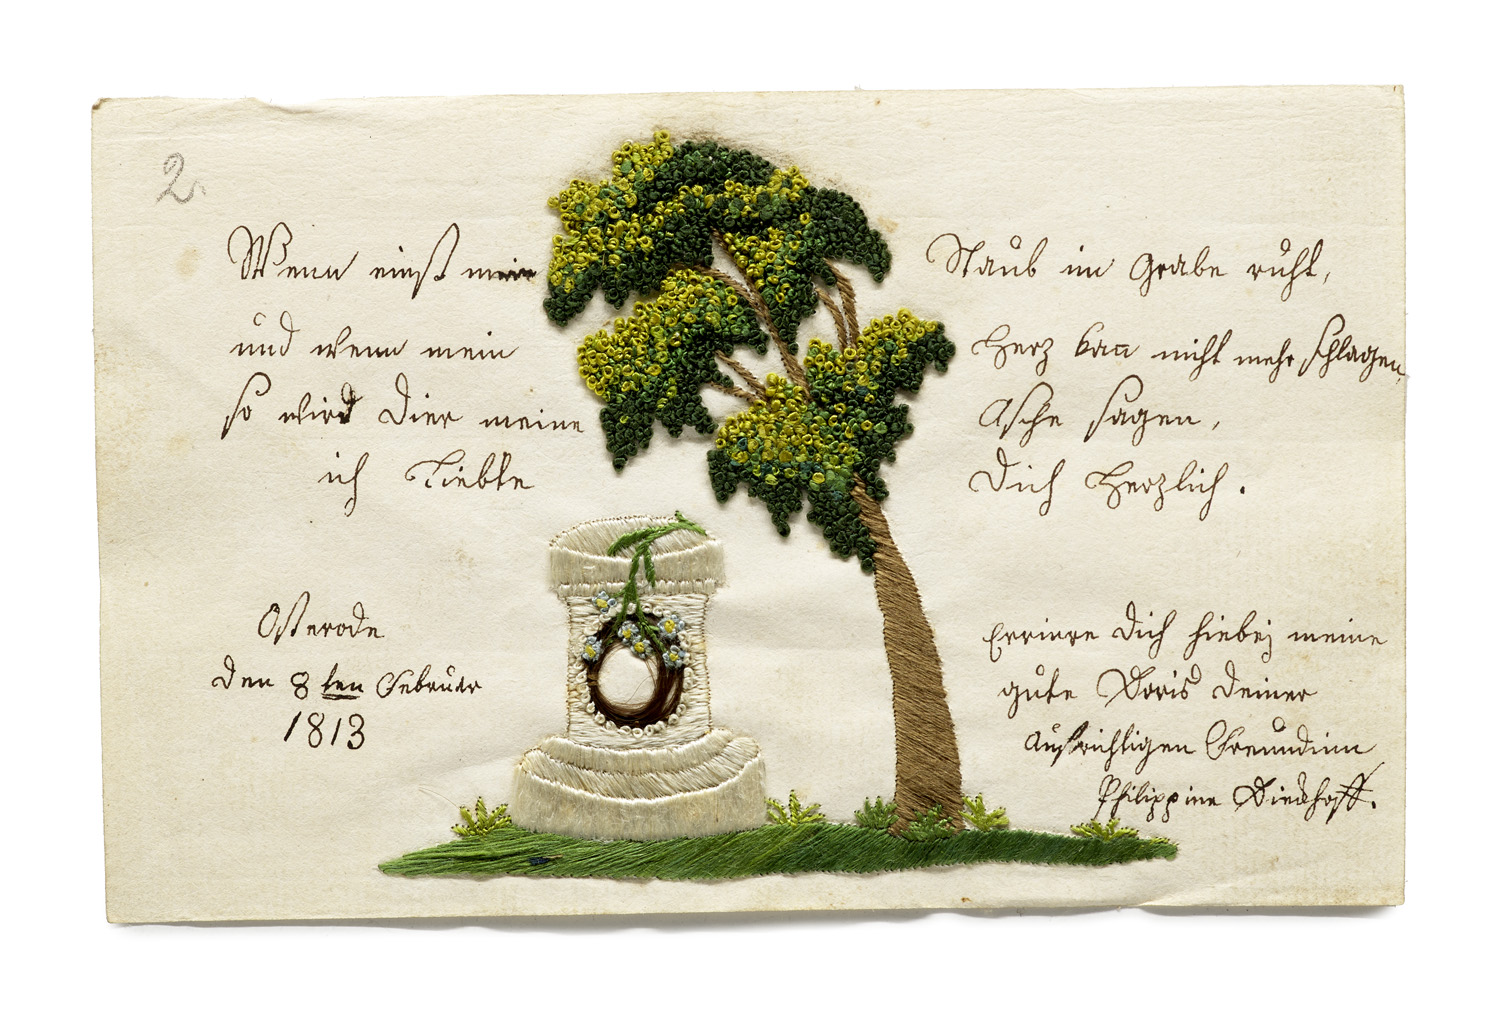 2.
Wenn einst mein Staub im Grabe ruht,
und wenn mein Herz kan̄ nicht mehr schlagen,
so wird Dier meine Asche sagen,
ich Liebte Dich Herzlich.
Osterode
den 8ten Februar
1813
Erriere Dich hiebej meine
gute Doris deiner
aufrichtigen Freundinn
Philippine Dieckhoff.